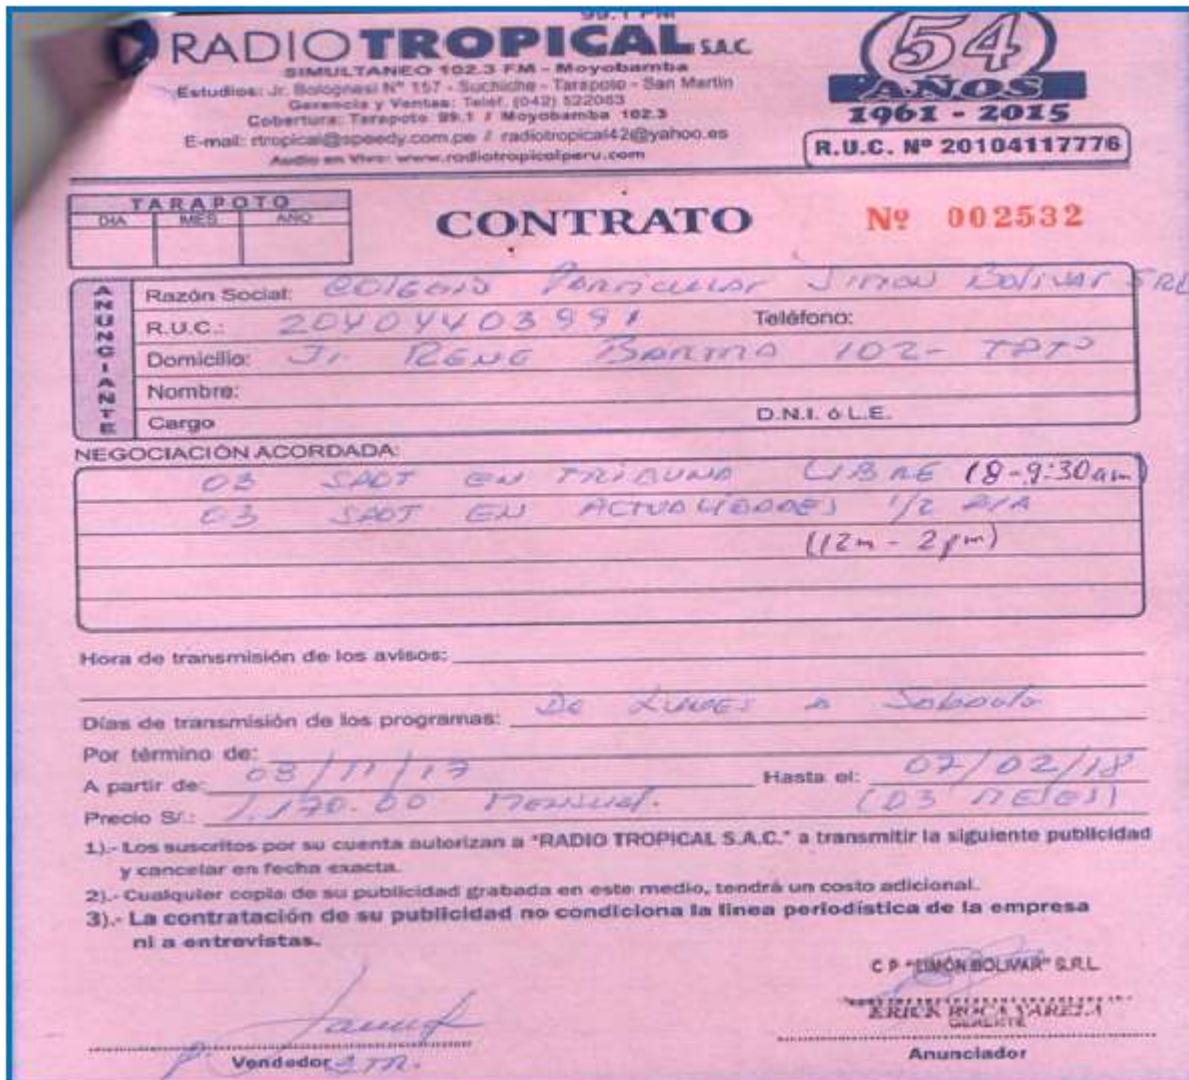 99.1 FM
RADIO TROPICAL S.A.C.
SIMULTANEO 102.3 FM - Moyobamba
Estudios: Jr. Bolognesi Nº 157 - Suchiche - Tarapoto - San Martín
Gerencia y Ventas: Teléf. (042) 522083
Cobertura: Tarapoto 99.1 / Moyobamba 102.3
E-mail: rtropical@speedy.com.pe // radiotropical42@yahoo.es
Audio en Vivo: www.radiotropicalperu.com
54
AÑOS
1961 - 2015
R.U.C. Nº 20104117776
TARAPOTO
DIA MES AÑO
CONTRATO
Nº 002532
ANUNCIANTE
Razón Social: COLEGIO Particular Simon Bolivar SRL
R.U.C.: 20404403991 Teléfono:
Domicilio: Jr. RENE 102 - TPTO
Nombre:
Cargo D.N.I. ó L.E.
NEGOCIACIÓN ACORDADA:
03 SPOT EN TRIBUNA LIBRE (8-9:30am)
03 SPOT EN ACTUALIDADES 1/2 DIA
(12m - 2pm)
Hora de transmisión de los avisos:
Días de transmisión de los programas: De Lunes a Sabado
Por término de:
A partir de: 08/11/17 Hasta el: 07/02/18
Precio S/.: 1,170.00 Mensual. (03 MESES)
1).- Los suscritos por su cuenta autorizan a "RADIO TROPICAL S.A.C." a transmitir la siguiente publicidad
y cancelar en fecha exacta.
2).- Cualquier copia de su publicidad grabada en este medio, tendrá un costo adicional.
3).- La contratación de su publicidad no condiciona la línea periodística de la empresa
ni a entrevistas.
C P "SIMÓN BOLIVAR" S.R.L.
ERICK ROCA VARELA
GERENTE
Vendedor
Anunciador